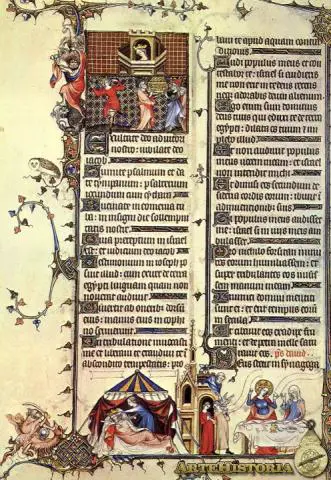 Exultate deo adiutori
nostro: iubilate deo
iacob.
Sumite psalmum et da
te tympanum: psalterium
iocundum cum cythara.
Buccinate in neomenia tu
ba: in insigni die sollempni
tatis nostre.
Quia preceptum in israel
est: et iudicium deo iacob.
Testimonium in ioseph po
suit illud: cum exiret de terra
egypti linguam quam non
noverat audivit.
Divertit ab oneribus dorsum
eius: manus eius in cophi
no servierunt.
In tribulatione invocasti
me et liberavi te: exaudivi te in
abscondito tempestatis: pro
bavi te apud aquam contra
dictionis.
Audi populus meus et con
testabor te: israel si audieris
me non erit in te deus recens
neque adorabis deum alienum
Ego enim sum dominus
deus tuus qui eduxi te de terra
egypti: dilata os tuum et im
plebo illud.
Et non audivit populus
meus vocem meam: et israel
non intendit michi.
Et dimisi eos secundum de
sideria cordis eorum: ibunt in
adinventionibus suis.
Si populus meus audisset
me: israel si in viis meis am
bulasset.
Pro nichilo forsitan inimi
cos eorum humiliassem: et
super tribulantes eos misis
sem manum meam.
Inimici domini mentiti
sunt ei: et erit tempus eorum
in secula.
Et cibavit eos ex adipe fru
menti: et de petra melle satu
ravit eos. ps david
Deus stetit in synagoga
ARTEHISTORIA